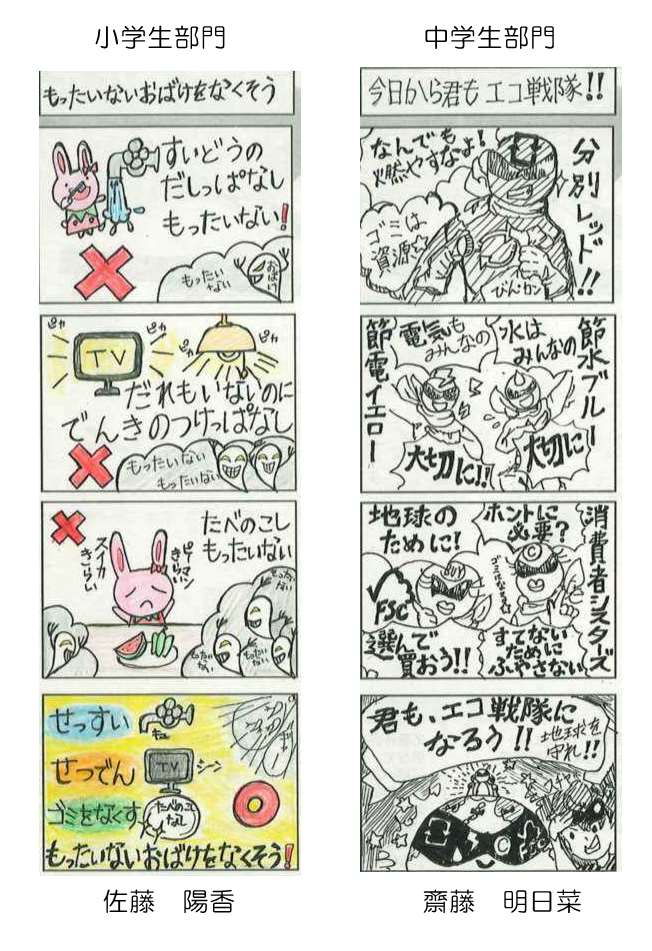 小学生部門
もったいないおばけをなくそう
すいどうの
だしっぱなし
もったいない!
もったい
ない
おばけ
ピカ
ピカ
ピカ
ピカ
TV
だれもいないのに
でんきのつけっぱなし
もったいない
もったいない
たべのこし
もったいない
ピーマン
きらい
スイカ
きらい
もったい
ない
もったい
ない
もったい
ない
せっすい
キュッ
せつでん
TV
シーン
ゴミをなくす
たべのこし
なし
もったいないおばけをなくそう!
佐藤 陽香
中学生部門
今日から君もエコ戦隊!!
分別レッド!!
なんでも
燃やすなよ!
ゴミは
資源☆
びんカン
節水ブルー
水は
みんなの
大切に
電気も
みんなの
大切に!!
節電イエロー
消費者シスターズ
ホントに
必要?
すてない
ために
ふやさない
地球の
ために!
FSC
BUY
選んで
買おう!!
君も、エコ戦隊に
なろう!!
地球を
守れ!!
齋藤 明日菜